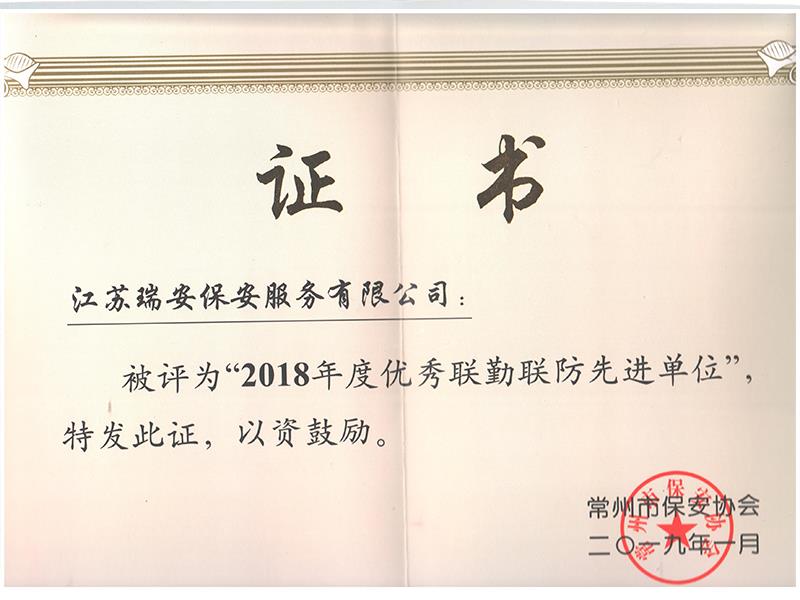 证 书
江苏瑞安保安服务有限公司：
被评为“2018年度优秀联勤联防先进单位”，
特发此证，以资鼓励。
常州市保安协会
二〇一九年一月
常州市保安协会